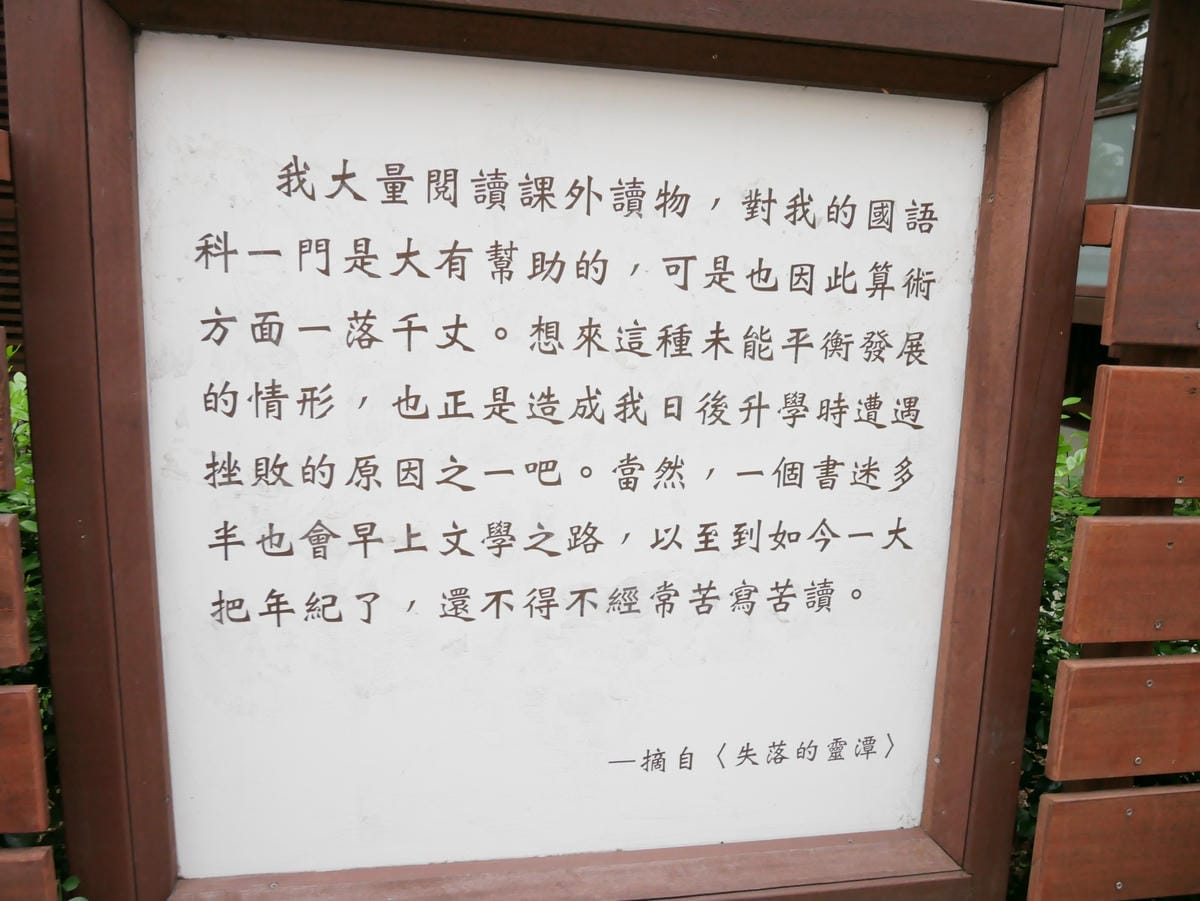 我大量閱讀課外讀物，對我的國語
科一門是大有幫助的，可是也因此算術
方面一落千丈。想來這種未能平衡發展
的情形，也正是造成我日後升學時遭遇
挫敗的原因之一吧。當然，一個書迷多
半也會早上文學之路，以至到如今一大
把年紀了，還不得不經常苦寫苦讀。
—摘自〈失落的靈潭〉